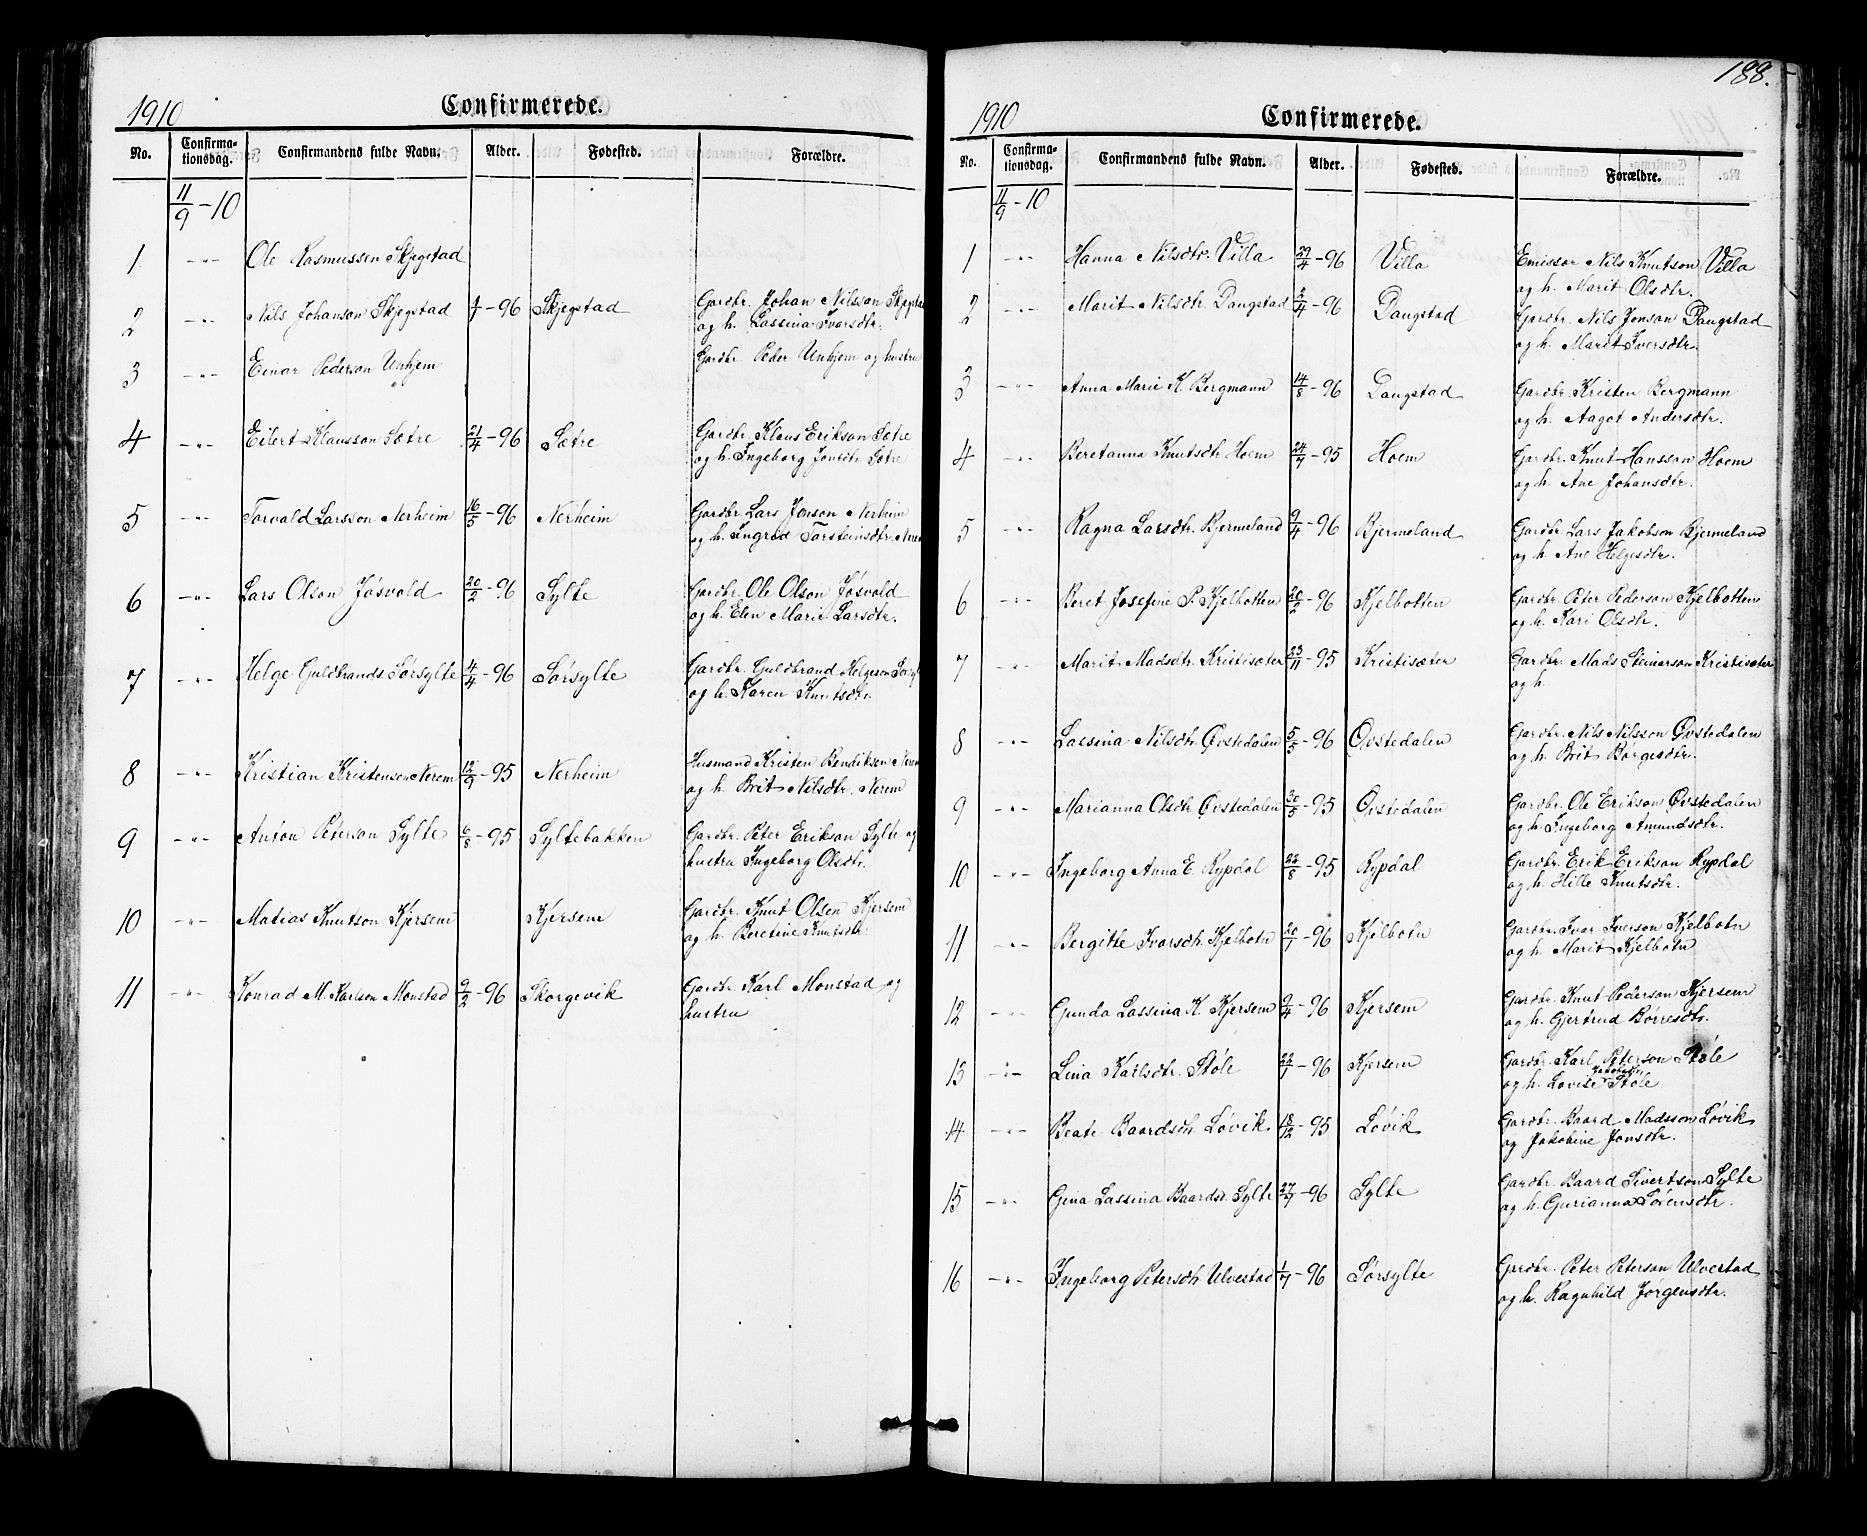 1910 Confirmerede.
No. Confirma-tionsdag. Confirmandens fulde Navn. Alder. Fødested. Forældre.
11/9-10
1 -"- Ole Rasmussen Skjegstad
2 -"- Nils Johanson Skjegstad -96 Skjegstad Gardbr. Johan Nilsson
og h. Lassina Ivarsdtr.
3 -"- Einar Pederson Unhjem Gardbr. Peder Unhjem og hustru
4 -"- Eilert Klausson Sætre 21/4-96 Sætre Gardbr. Klaus Erikson Sætre
og h. Ingeborg Jonsdtr. Sætre
5 -"- Torvald Larsson Nerheim 16/5-96 Nerheim Gardbr. Lars Jonson Nerheim
og h. Ingrid Torsteinsdtr.
6 -"- Lars Olson Jøsvold 20/2-96 Sylte Gardbr. Ole Olson Jøsvold
og h. Elen Marie Larsdtr.
7 -"- Helge Guldbrands Sørsylte 4/4-96 Sørsylte Gardbr. Guldbrand Helgeson
og h. Karen Knutsdtr.
8 -"- Kristian Kristenson Nerem 12/9-95 Nerheim Husmand Kristen Bendiksen
og h. Brit Nilsdtr. Nerem
9 -"- Anton Peterson Sylte 6/8-95 Syltebakken Gardbr. Peter Erikson Sylte og
hustru Ingeborg Olsdtr.
10 -"- Matias Knutson Kjersem Kjersem Gardbr. Knut Olsen Kjersem
og h. Beretine Knutsdtr.
11 -"- Konrad M. Karlson Monstad 9/2-96 Skorgevik Gardbr. Karl Monstad og
hustru
188.
1910 Confirmerede.
No. Confirma-tionsdag. Confirmandens fulde Navn. Alder. Fødested. Forældre.
11/9-10
1 -"- Hanna Nilsdtr. Villa 29/4-96 Villa Emissær Nils Knutson Villa
og h. Marit Olsdtr.
2 -"- Marit Nilsdtr. Daugstad 2/4-96 Daugstad Gardbr. Nils Jonson Daugstad
og h. Marit Iversdtr.
3 -"- Anna Marie K. Bergmann 14/8-96 Daugstad Gardbr. Kristen Bergmann
og h. Aagot Andersdtr.
4 -"- Beretanna Knutsdtr. Hoem 24/7-95 Hoem Gardbr. Knut Hansson Hoem
og h. Ane Johansdtr.
5 -"- Ragna Larsdtr. Bjermeland 9/4-96 Bjermeland Gardbr. Lars Jakobson Bjermeland
og h. Ane Helgesdtr.
6 -"- Beret Josefine P. Kjelbotten 20/2-96 Kjelbotten Gardbr. Peter Pederson Kjelbotten
og h. Kari Olsdtr.
7 -"- Marit Madsdtr. Kristisæter 23/11-95 Kristisæter Gardbr. Mads Steinarson Kristisæter
og h.
8 -"- Lassina Nilsdtr. Øvstedalen 5/5-96 Øvstedalen Gardbr. Nils Nilsson Øvstedalen
og h. Brit Børgesdtr.
9 -"- Marianna Olsdtr. Øvstedalen 30/5-95 Øvstedalen Gardbr. Ole Erikson Øvstedalen
og h. Ingeborg Amundsdtr.
10 -"- Ingeborg Anna E. Rypdal 22/8-95 Rypdal Gardbr. Erik Erikson Rypdal
og h. Hille Knutsdtr.
11 -"- Bergitte Ivarsdtr. Kjelbotn 20/1-96 Kjelbotn Gardbr. Ivar Iverson Kjelbotn
og h. Marit Kjelbotn
12 -"- Gunda Lassina K. Kjersem 9/4-96 Kjersem Gardbr. Knut Pederson Kjersem
og h. Gjertrud Børresdtr.
13 -"- Lina Karlsdtr. Støle 22/1-96 Kjersem Gardbr. Karl Peterson Støle
og h. Lovise Støle
14 -"- Beate Baardsdtr. Løvik 18/12-95 Løvik Gardbr. Baard Madsson Løvik
og Jakobine Jonsdtr.
15 -"- Gina Lassina Baardsd. Sylte 27/7-96 Sylte Gardbr. Baard Sivertson Sylte
og h. Gurianna Sørensdtr.
16 -"- Ingeborg Petersdtr. Ulvestad 1/7-96 Sørsylte Gardbr. Peter Peterson Ulvestad
og h. Ragnhild Jørgensdtr.